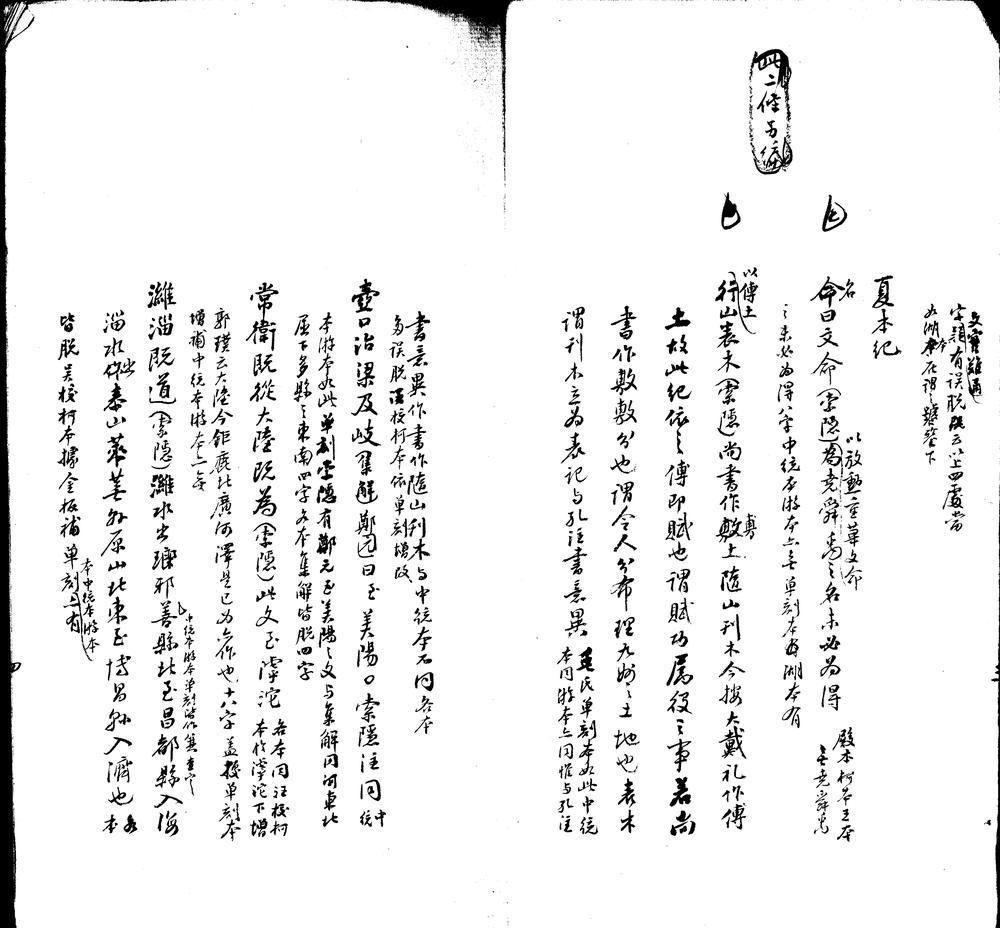 此二條另編
文實難通
字類有誤脫以上四處當
如湖本在謂之難鑒下
夏本紀
名
命曰文命(索隱)為堯舜禹之名未必為得
以放勳重華文命
殿本柯本王本
無堯舜禹
之未必為得八字中統本游本亦無單刻本毋湖本有
以傅土
行山表木(索隱)尚書作敷土隨山刊木今按大戴礼作傅
土故此紀依之傅即賦也謂賦功屬役之事若尚
書作敷敷分也謂令人分布理九州之土地也表木
謂刊木立為表記与孔注書意異
毛民單刻本如此中統
本同游本亦同惟与孔注
書意異作書作隨山刊木与中統本不同各本
多誤脫汪校柯本依單刻增改
壺口治梁及岐(集解)鄭元曰至美陽○索隱注同
中統
本游本如此單刻索隱有鄭元至美陽之文与集解同河東北
屈下多縣之東南四字各本集解皆脫四字
常衛既從大陸既為(索隱)此文至滹沱
各本同汪校柯
本作滹沱下增
郭璞云大陸今鉅鹿北廣河澤是已為亦作也十八字蓋據單刻本
增補中統本游本亦無
濰淄既道(索隱)濰水出瑯邪善縣北至昌都縣入海
中統本游本單刻皆作箕
淄水出泰山萊蕪縣原山北東至博昌縣入濟也
各本
皆脫吳校柯本據金板補單刻亦有
本中統本游本